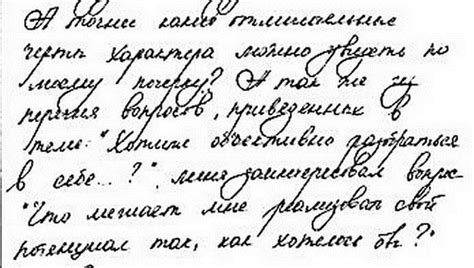 А точнее какие отличительные
черты характера можно увидеть по
моему почерку? А так же из
перечня вопросов, приведенных в
теме: "Хотите объективно разобраться
в себе...?", меня заинтересовал вопрос
"Что мешает мне реализовать свой
потенциал так, как хотелось бы?"